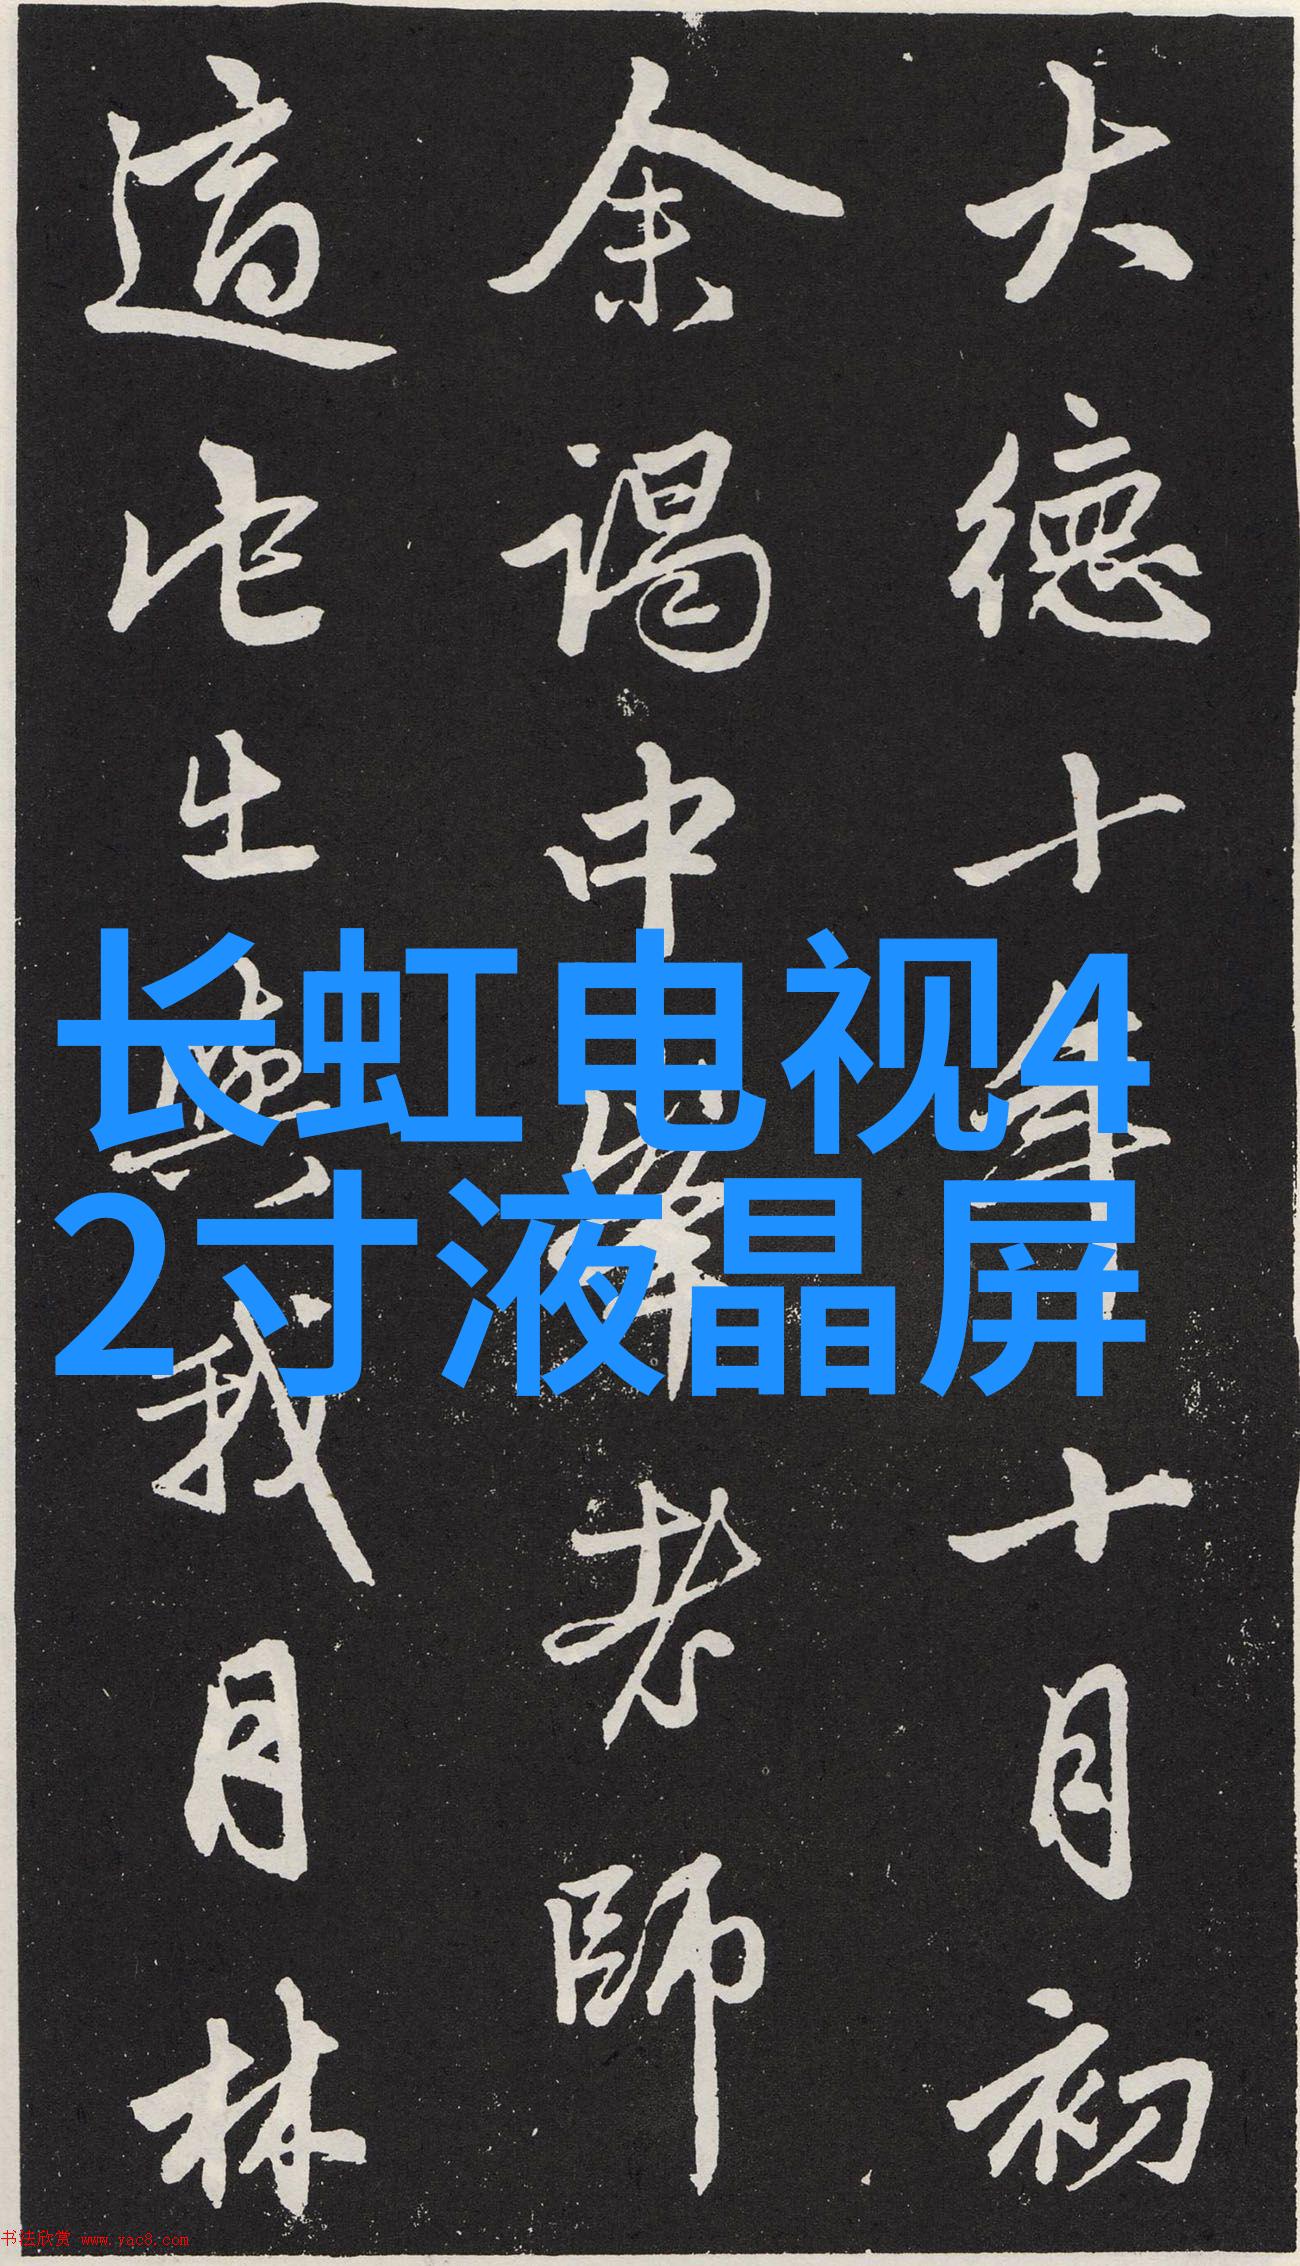 大德十年十月初
余謁中峯老師
適他出與我月林
长虹电视4
2寸液晶屏
书法欣赏 www.yac8.com